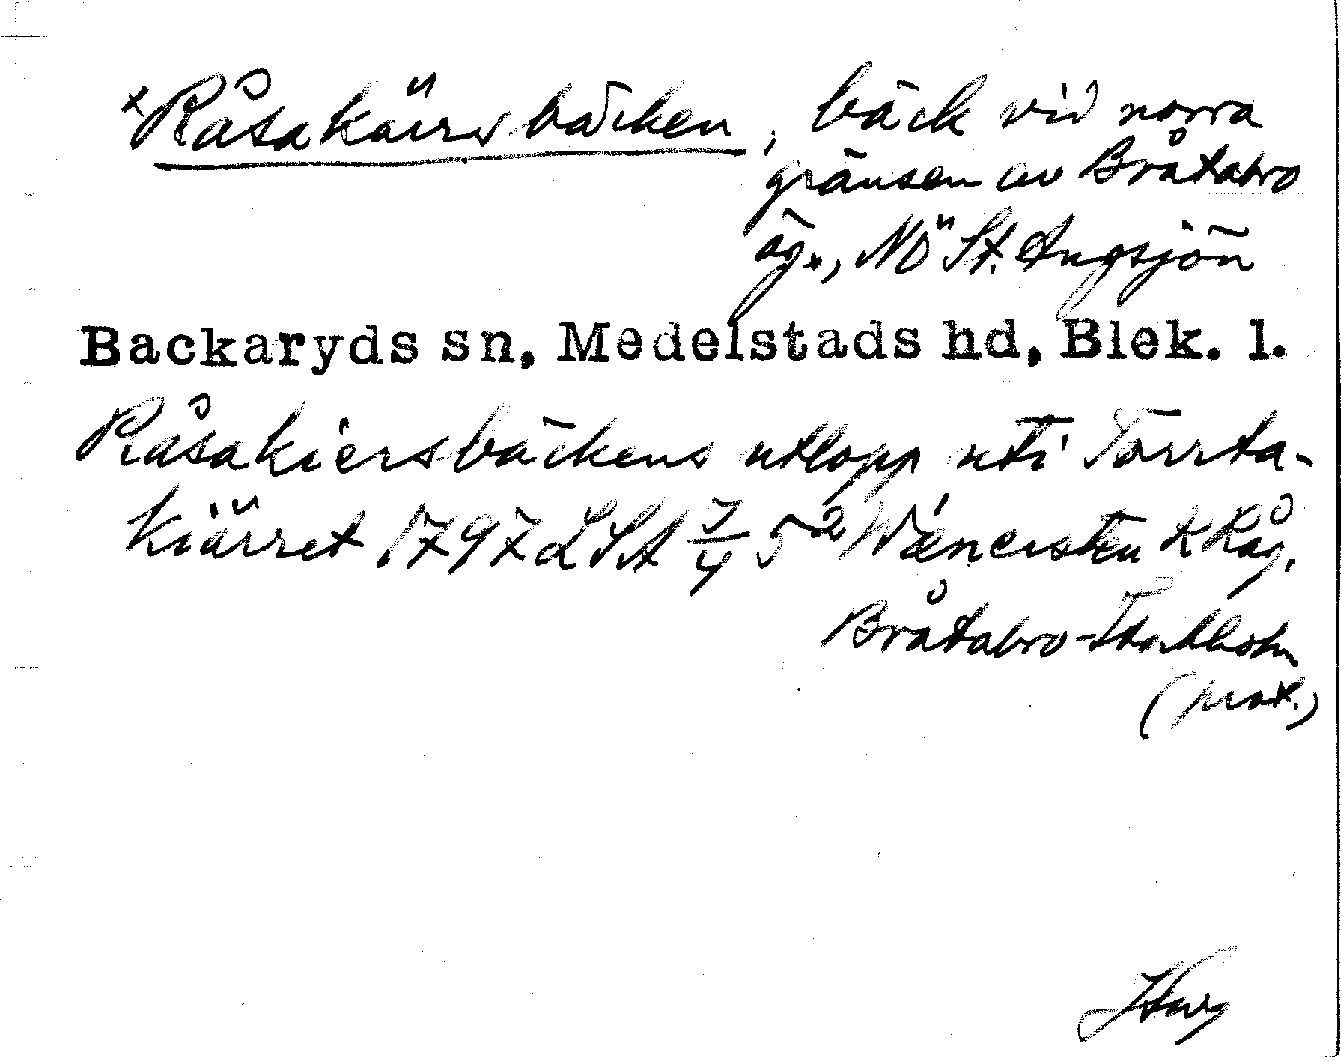 ×Råsakärrsbäcken, bäck vid norra
gränsen av Bråtabro
äg., NÖ St. Angsjön
Backaryds sn, Medelstads hd, Blek. l.
Råsakiersbäckens utlopp uti Torrta-
kiärret 1797 LSA 7/4 5² k Råg.
Bråtabro-Stockholm
(prot.)